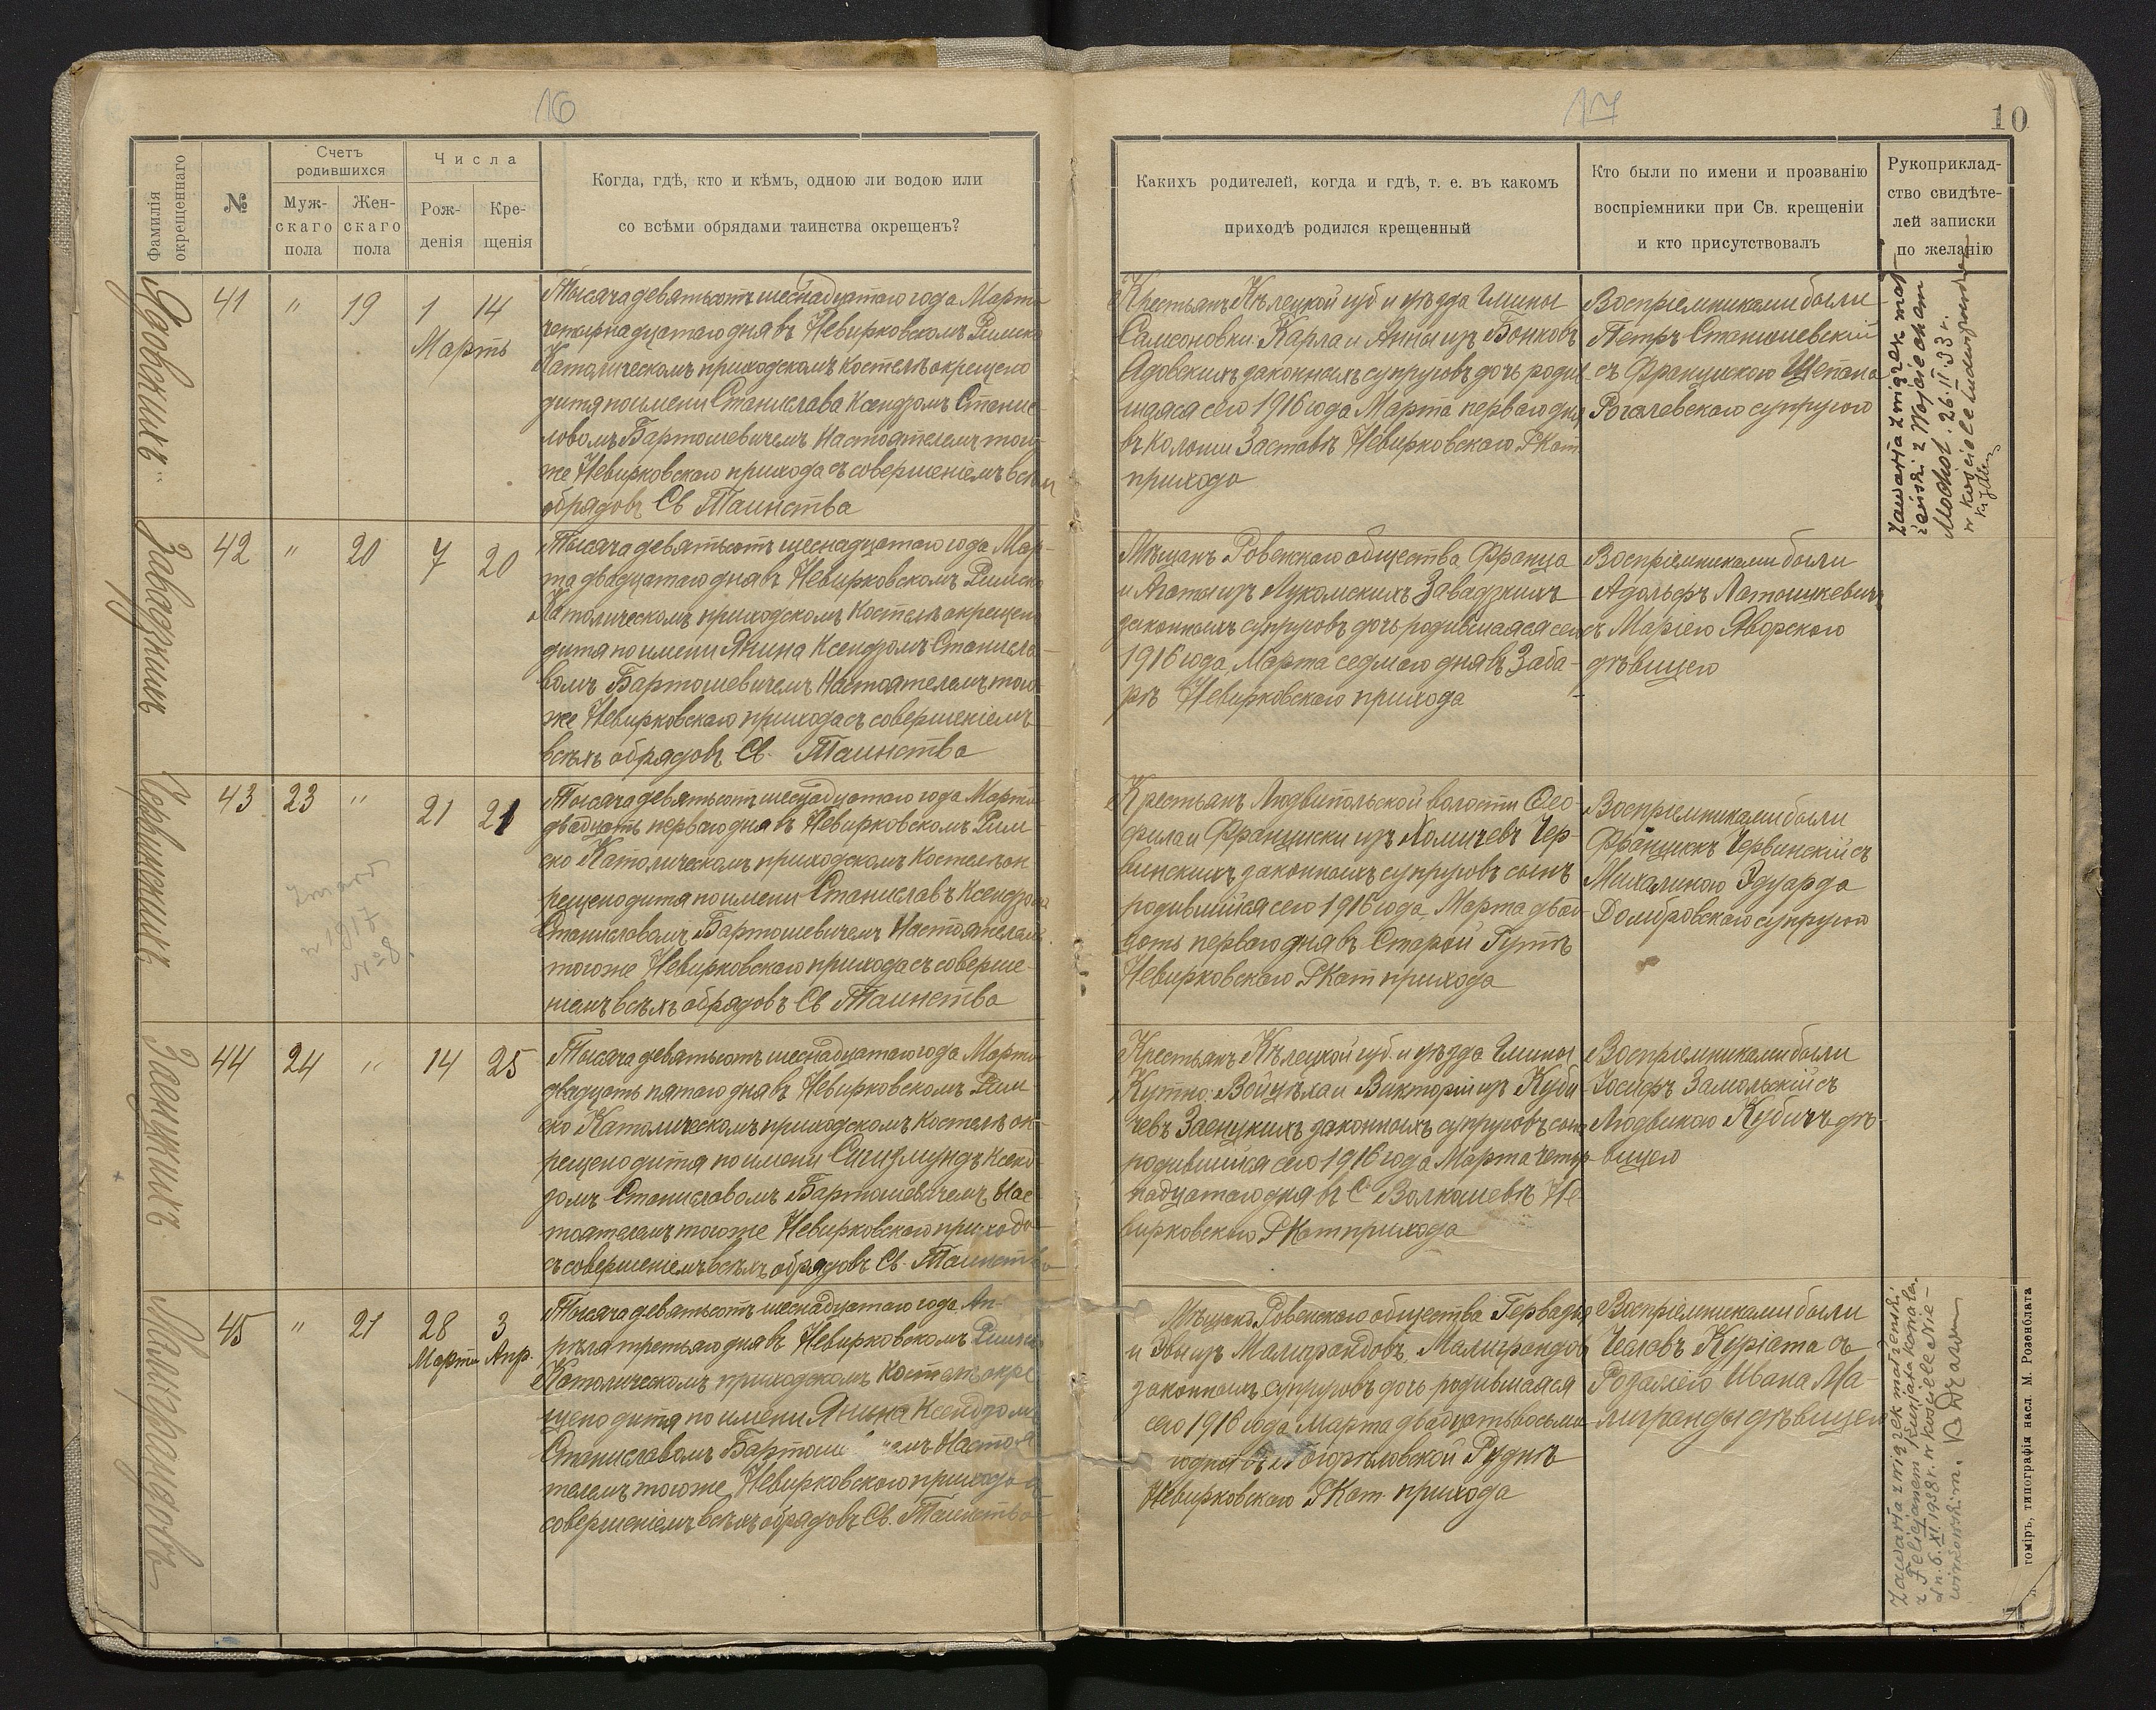 16
17
10
Фамилія окрещеннаго
№
Счетъ родившихся
Муж-
скаго
пола
Жен-
скаго
пола
Числа
Рож-
денія
Кре-
щенія
Когда, гдѣ, кто и кѣмъ, одною ли водою или
со всѣми обрядами таинства окрещенъ?
Какихъ родителей, когда и гдѣ, т. е. въ какомъ
приходѣ родился крещенный
Кто были по имени и прозванію
воспріемники при Св. крещеніи
и кто присутствовалъ
Рукоприклад-
ство свидѣте-
лей записки
по желанію
41 " 19 1 14
Мартъ
Тысяча девятьсотъ шеснадцатого года Марта
четырнадцатого дня въ Невирковскомъ Римско
Католическомъ приходскомъ костелѣ окрещено
дитя по имени Станислава Ксендзомъ Станис-
лавомъ Бартошевичемъ Настоятелемъ того
же Невирковскаго прихода съ совершеніемъ всѣхъ
обрядовъ Св Таинства
Крестьянъ Кѣлецкой губ и уѣзда Гмины
Самсоновки Карла и Анны изъ Бонковъ
Адовскихъ законныхъ супруговъ дочь родив-
шаяся сего 1916 года Марта перваго дня
въ колоніи Заставѣ Невирковскаго РКат
прихода
Воспріемниками были
Петръ Станишевскій
съ Францишкою Щепана
Рогалевскаго супругою
Zawarła związek mał-
żeński z Wojciechem
26.II.33 r.
w kościele ludwipolskim
42 " 20 7 20
Завадзкихъ
Тысяча девятьсотъ шеснадцатого года Мар-
та двадцатого дня въ Невирковскомъ Римско
Католическомъ приходскомъ костелѣ окрещено
дитя по имени Янина Ксендзомъ Станисла-
вомъ Бартошевичемъ Настоятелемъ того
же Невирковскаго прихода съ совершеніемъ
всѣхъ обрядовъ Св. Таинства
Мѣщанъ Ровенскаго общества Франца
и Агаты изъ Лукомскихъ Завадзкихъ
законныхъ супруговъ дочь родившаяся сего
1916 года Марта седмого дня въ Заба-
рѣ Невирковскаго прихода
Воспріемниками были
Адольфъ Латошкевичъ
съ Маріею Яворскою
дѣвицею
43 23 " 21 21
Червинскихъ
Тысяча девятьсотъ шеснадцатого года Марта
двадцать перваго дня въ Невирковскомъ Рим
ско Католическомъ приходскомъ костелѣ ок
рещено дитя по имени Станиславъ Ксендзомъ
Станиславомъ Бартошевичемъ Настоятелемъ
того же Невирковскаго прихода съ соверше-
ніемъ всѣхъ обрядовъ Св Таинства
Крестьянъ Людвипольской волости Фео-
фила и Францишки изъ Холичевъ Чер-
винскихъ законныхъ супруговъ сынъ
родившійся сего 1916 года Марта двад-
цать перваго дня въ Старой Гутѣ
Невирковскаго РКат прихода
Воспріемниками были
Францишкъ Червинскій съ
Михалиною Эдуарда
Домбровскаго супругою
Zmarł
w 1917
№ 8
44 24 " 14 25
Заенцкихъ
Тысяча девятьсотъ шеснадцатого года Марта
двадцать пятаго дня въ Невирковскомъ Рим-
ско Католическомъ приходскомъ костелѣ ок-
рещено дитя по имени Сигизмундъ Ксенд-
зомъ Станиславомъ Бартошевичемъ Нас-
тоятелемъ того же Невирковскаго прихода
съ совершеніемъ всѣхъ обрядовъ Св. Таинства
Крестьянъ Кѣлецкой губ. и уѣзда Гмины
Кутно Войцѣха и Викторіи изъ Куби
чевъ Заенцкихъ законныхъ супруговъ сынъ
родившійся сего 1916 года Марта четыр-
надцатого дня въ С. Волкошевѣ Не
вирковскаго РКат прихода
Воспріемниками были
Іосифъ Замольскій съ
Людвикою Кубичъ дѣ-
вицею
45 " 21 28 3
Марта Апр.
Малиграндовъ
Тысяча девятьсотъ шеснадцатого года Ап-
рѣля третьяго дня въ Невирковскомъ Римско
Католическомъ приходскомъ костелѣ окре
щено дитя по имени Янина Ксендзомъ
Станиславомъ Бартош емъ Настоя
телемъ того же Невирковскаго прихода съ
совершеніемъ всѣхъ обрядовъ Св. Таинства
Мѣщанъ Ровенскаго общества Гервазія
и Эвы изъ Малиграндовъ Малиграндовъ
законныхъ супруговъ дочь родившаяся
сего 1916 года Марта двадцать восьма-
го дня въ Погорѣловской Руднѣ
Невирковскаго РКат. прихода
Воспріемниками были
Чеславъ Куріата съ
Розаліею Ивана Ма-
лигранды дѣвицею
Zawarła związek małżeński
z Felicjanem Kurjata
dn. 6.XI.1938 r. w kościele Nie-
wirkowskim.
томіръ, типографія насл. М. Розенблата